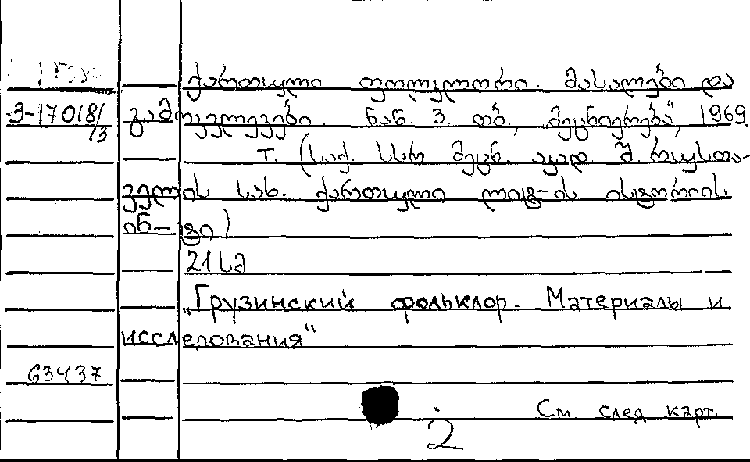 ქართული ფოლკლორი. მასალები და
Э-17018/
3
გამოკვლევები. ნაწ. 3. თბ., „მეცნიერება“, 1969
т. (საქ. სსრ მეცნ. აკად. შ. რუსთა-
ველის სახ. ქართული ლიტ-ის ისტორიის
ინ-ტი)
21 სმ
„Грузинский фольклор. Материалы и
исследования“
63437
См. след карт.
2